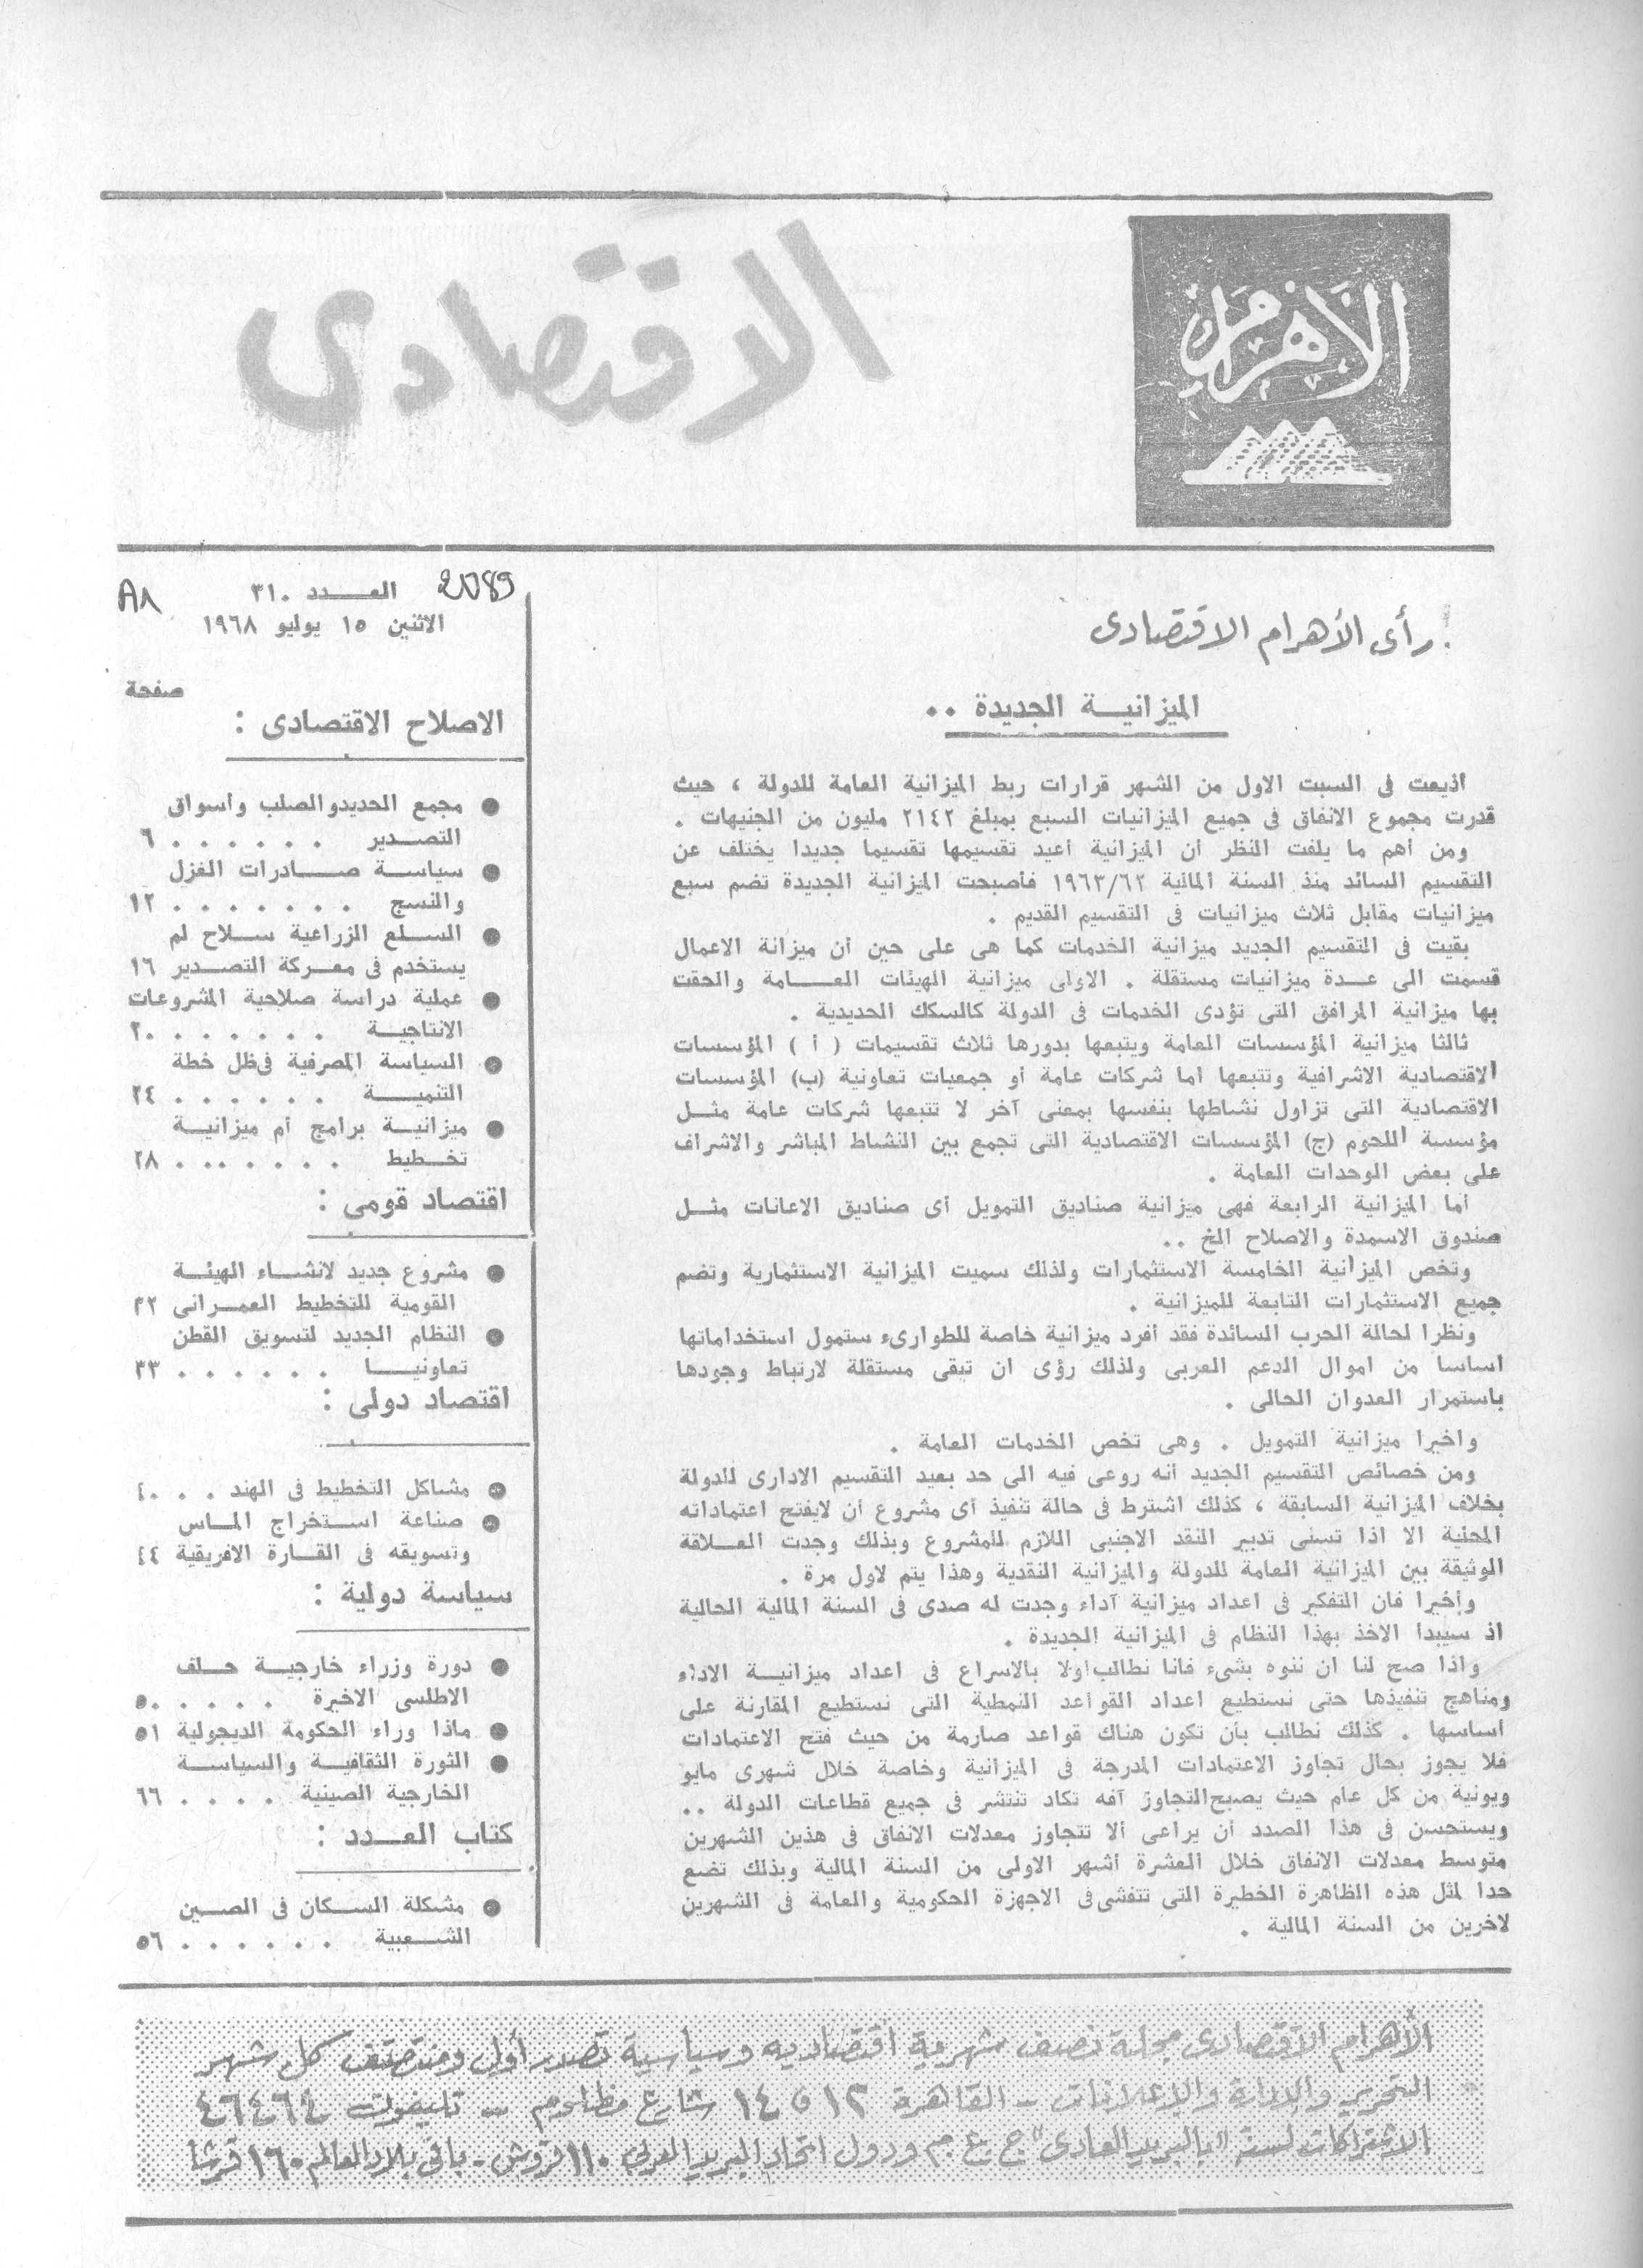 الأهرام
الاقتصادى
رأى الأهرام الاقتصادى
الميزانيـــة الجديدة ..
أذيعت فى السبت الاول من الشهر قرارات ربط الميزانية العامة للدولة ، حيث
قدرت مجموع الانفاق فى جميع الميزانيات السبع بمبلغ ٢١٤٢ مليون من الجنيهات .
ومن أهم ما يلفت النظر أن الميزانية أعيد تقسيمها تقسيما جديدا يختلف عن
التقسيم السائد منذ السنة المالية ١٩٦٣/٦٢ فأصبحت الميزانية الجديدة تضم سبع
ميزانيات مقابل ثلاث ميزانيات فى التقسيم القديم .
بقيت فى التقسيم الجديد ميزانية الخدمات كما هى على حين أن ميزانة الاعمال
قسمت الى عــدة ميزانيات مستقلة . الاولى ميزانية الهيئات العـــامة والحقت
بها ميزانية المرافق التى تؤدى الخدمات فى الدولة كالسكك الحديدية .
ثالثا ميزانية المؤسسات العامة ويتبعها بدورها ثلاث تقسيمات ( أ ) المؤسسات
الاقتصادية الاشرافية وتتبعها اما شركات عامة أو جمعيات تعاونية (ب) المؤسسات
الاقتصادية التى تزاول نشاطها بنفسها بمعنى آخر لا تتبعها شركات عامة مثــل
مؤسسة اللحوم (ج) المؤسسات الاقتصادية التى تجمع بين النشاط المباشر والاشراف
على بعض الوحدات العامة .
أما الميزانية الرابعة فهى ميزانية صناديق التمويل أى صناديق الاعانات مثــل
صندوق الاسمدة والاصلاح الخ ..
وتخص الميزانية الخامسة الاستثمارات ولذلك سميت الميزانية الاستثمارية وتضم
جميع الاستثمارات التابعة للميزانية .
ونظرا لحالة الحرب السائدة فقد أفرد ميزانية خاصة للطوارىء ستمول استخداماتها
اساسا من اموال الدعم العربى ولذلك رؤى ان تبقى مستقلة لارتباط وجودها
باستمرار العدوان الحالى .
واخيرا ميزانية التمويل . وهى تخص الخدمات العامة .
ومن خصائص التقسيم الجديد أنه روعى فيه الى حد بعيد التقسيم الادارى للدولة
بخلاف الميزانية السابقة ، كذلك اشترط فى حالة تنفيذ أى مشروع أن لايفتح اعتماداته
المحلية الا اذا تسنى تدبير النقد الاجنبى اللازم للمشروع وبذلك وجدت العــلاقة
الوثيقة بين الميزانية العامة للدولة والميزانية النقدية وهذا يتم لاول مرة .
وأخيرا فان التفكير فى اعداد ميزانية آداء وجدت له صدى فى السنة المالية الحالية
اذ سيبدا الاخذ بهذا النظام فى الميزانية الجديدة .
واذا صح لنا ان ننوه بشىء فانا نطالب اولا بالاسراع فى اعداد ميزانيــة الاداء
ومناهج تنفيذها حتى نستطيع اعداد القواعد النمطية التى نستطيع المقارنة على
اساسها . كذلك نطالب بأن تكون هناك قواعد صارمة من حيث فتح الاعتمادات
فلا يجوز بحال تجاوز الاعتمادات المدرجة فى الميزانية وخاصة خلال شهرى مايو
ويونية من كل عام حيث يصبح التجاوز آفه تكاد تنتشر فى جميع قطاعات الدولة ..
ويستحسن فى هذا الصدد أن يراعى ألا تتجاوز معدلات الانفاق فى هذين الشهرين
متوسط معدلات الانفاق خلال العشرة أشهر الاولى من السنة المالية وبذلك تضع
حدا لمثل هذه الظاهرة الخطيرة التى تتفشى فى الاجهزة الحكومية والعامة فى الشهرين
لاخرين من السنة المالية .
العـــدد ٣١٠
الاثنين ١٥ يوليو ١٩٦٨
صفحة
الاصلاح الاقتصادى :
● مجمع الحديدوالصلب وأسواق
التصــدير . . . . . . ٦
● سياسـة صــادرات الغزل
والنسج . . . . . . . ١٢
● الســلع الزراعية ســلاح لم
يستخدم فى معــركة التصــدير ١٦
● عملية دراسة صلاحية المشروعات
الانتاجيــة . . . . . . . ٢٠
● السياسة المصرفية فىظل خطة
التنميـــة . . . . . . ٢٤
● ميزانيــة برامج أم ميزانيــة
تخــطيط . . . . . .. . ٢٨
اقتصاد قومى :
● مشروع جديد لانشــاء الهيئــة
القومية للتخطيط العمــرانى ٣٢
● النظام الجديد لتسويق القطن
تعاونيــا . . . . . . . ٣٣
اقتصاد دولى :
● مشاكل التخطيط فى الهند . . . ٤٠
● صناعة استــخراج المــاس
وتسويقه فى القــارة الافريقية ٤٤
سياسة دولية :
● دورة وزراء خارجيــة حــلف
الاطلسى الاخيرة . . . . . ٥٠
● ماذا وراء الحكومة الديجولية ٥١
● الثورة الثقافيــة والسياســة
الخارجية الصينية . . . . ٦٦
كتاب العـــدد :
● مشكلة الســكان فى الصــين
الشــعبية . . . . . . ٥٦
الأهرام الاقتصادى مجلة نصف شهرية اقتصاديه وسياسية تصدر أول ومنتصف كل شهر
التحرير والإدارة والإعلانات - القاهرة ١٢ و ١٤ شارع مظلوم - تليفون ٤٦٤٦٤
الاشتراكات لسنة "بالبريد العادى" ج ع م ودول اتحاد البريد العربى ١١٠ قروش - باقى بلاد العالم ١٦٠ قرشا